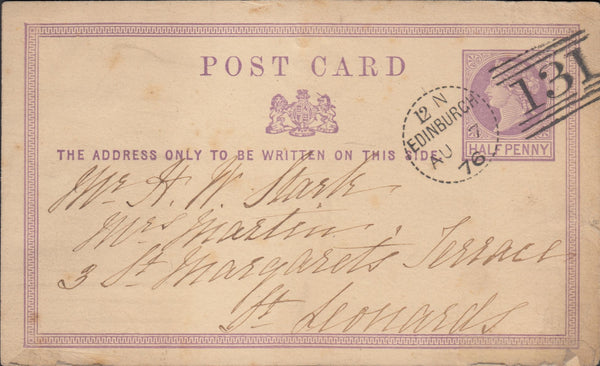 POST CARD
THE ADDRESS ONLY TO BE WRITTEN ON THIS SIDE
HALFPENNY
12 N
EDINBURGH
AU 7
76
131
Mr H. W. Stark
Mrs Martin.
3 St Margarets Terrace
St Leonards